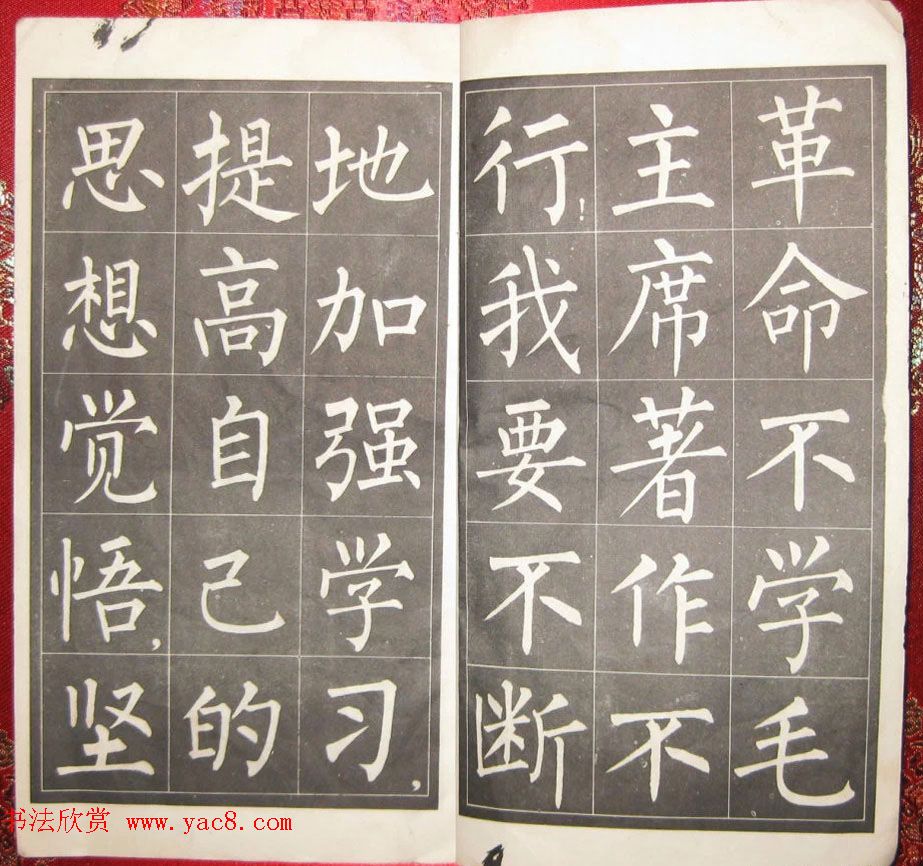 革命不学毛
主席著作不
行!我要不断
地加强学习,
提高自己的
思想觉悟,坚
书法欣赏 www.yac8.com